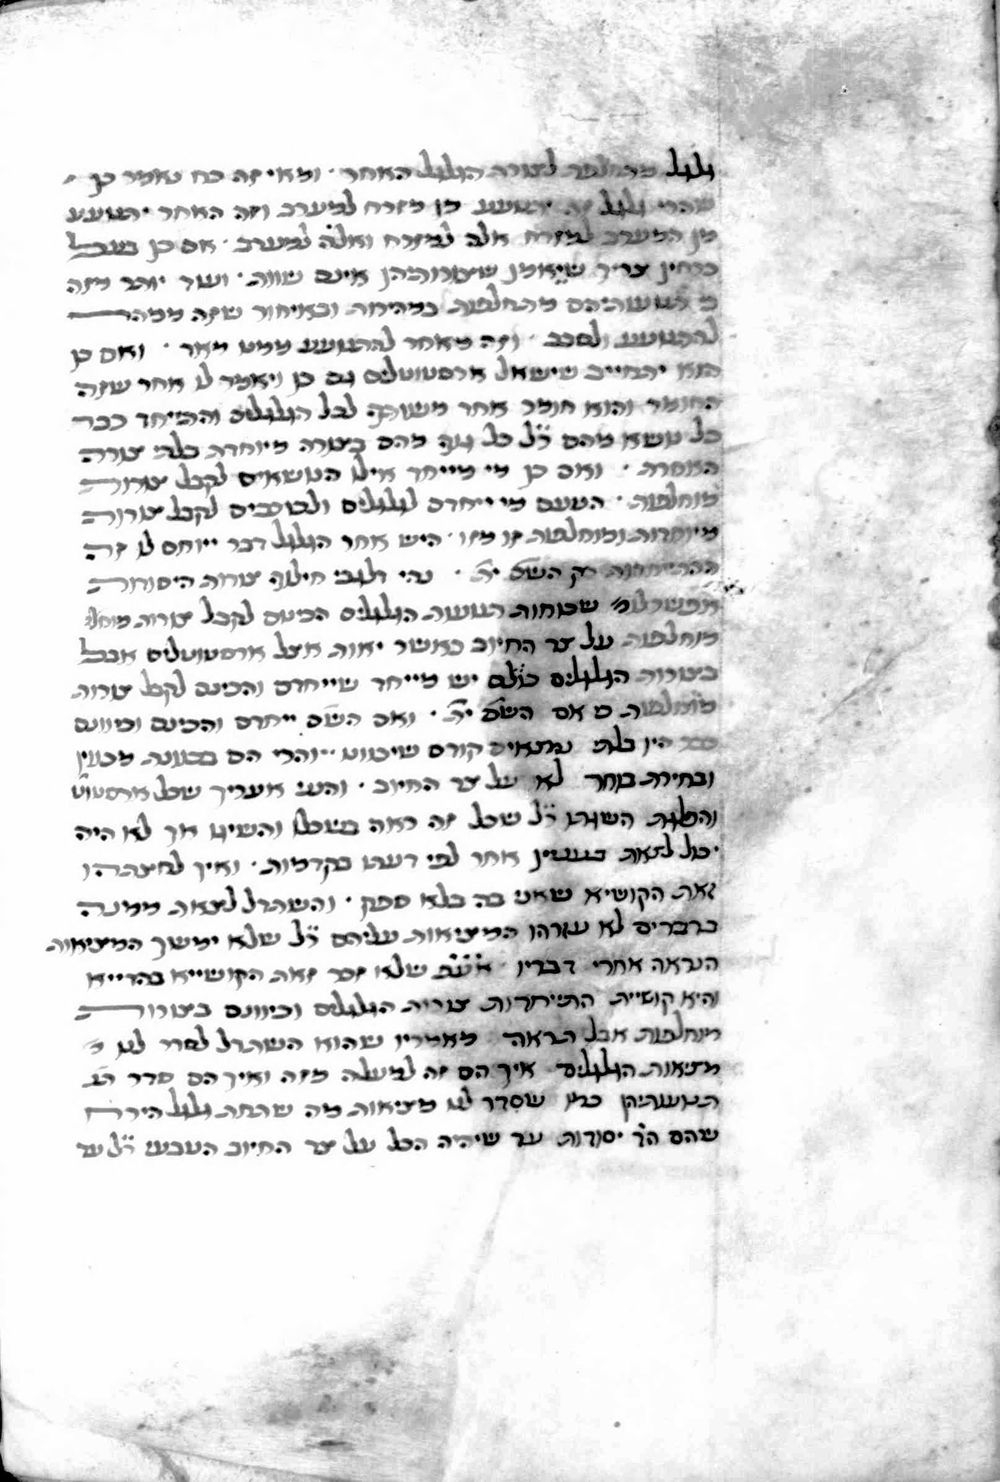 גלגל מתחלפת לצורת הגלגל האחר · ומאי זה כח נאמר כן
שהרי גלגל זה יתנועע מן מזרח למערב וזה האחר יתנועע
מן המערב למזרח אלה למזרח ואלה למערב · אם כן בעל
כרחין צריך שיאמן שצורותיהן אינם שוות · ועוד יותר מזה
תנועותיהם מתחלפות במהירות ובאיחור שזה ממהר
להתנועע ולסבב · וזה מאחר להתנועע ממנו מאד · ואם כן
הוא יתחייב שישאל ארסטוטליס גם כן ויאמר לו אחר שזה
החומר והוא חומר אחד משותף לכל הגלגלים והתייחד כבר
כל נושא מהם ר״ל כל גוף מהם בצורה מיוחדת בלתי צורת
האחרת · ואם כן מי מייחד אילו הנושאים לקבל צורות
מוחלפות · הטעם מי ייחדם לגלגלים ולכוכבים לקבל צורות
מיוחדות ומוחלפות זו מזו · היש אחר הגלגל דבר ייוחס לו זה
ההתייחדות רק השם ית׳ · נהי דלגבי חילוף צורות היסודות
שכוחות תנועות הגלגלים הכינום לקבל צורות
מוחלפות על צד החיוב כאשר יאות אצל ארסטוטליס אבל
בצורות הגלגלים כולם יש מייחד שייחדם והכינם לקבל צורות
מוחלפות כ אם השם ית׳ · ואם השם ייחדם והכינם וכיוונם
כבר היו בלתי נמצאים קודם שיכוונו · והרי הם בכוונת מכוין
ובחירת בוחר לא על צד החיוב · והנני אעריך שכל ארסטוט׳
והפלגת השגתו ר״ל שכל זה ראה בשכלו והשיגו אך לא היה
יכול לצאת בענין אחר לפי דעתו בקדמות · ואיך לחצתהו
זאת הקושיא שאנו בה בלא ספק · והשתדל לצאת ממנה
בדברים לא עזרהו המציאות עליהם ר״ל שלא ימשך המציאות
הנראה אחרי דבריו · אע״פ שלא זכר זאת הקושייא בהדייא
והיא קושיית התייחדות צורות הגלגלים וכיוונם בצורות
מוחלפות אבל תראה מאמריו שהוא השתדל לסדר לנו
מציאות הגלגלים איך הם זה למעלה מזה ואיך הם סדר
תנועותיהן כמו שסדר לנו מציאות מה שתחת גלגל הירח
שהם הד׳ יסודות עד שיהיה הכל על צד החיוב הטבעי ר״ל עד